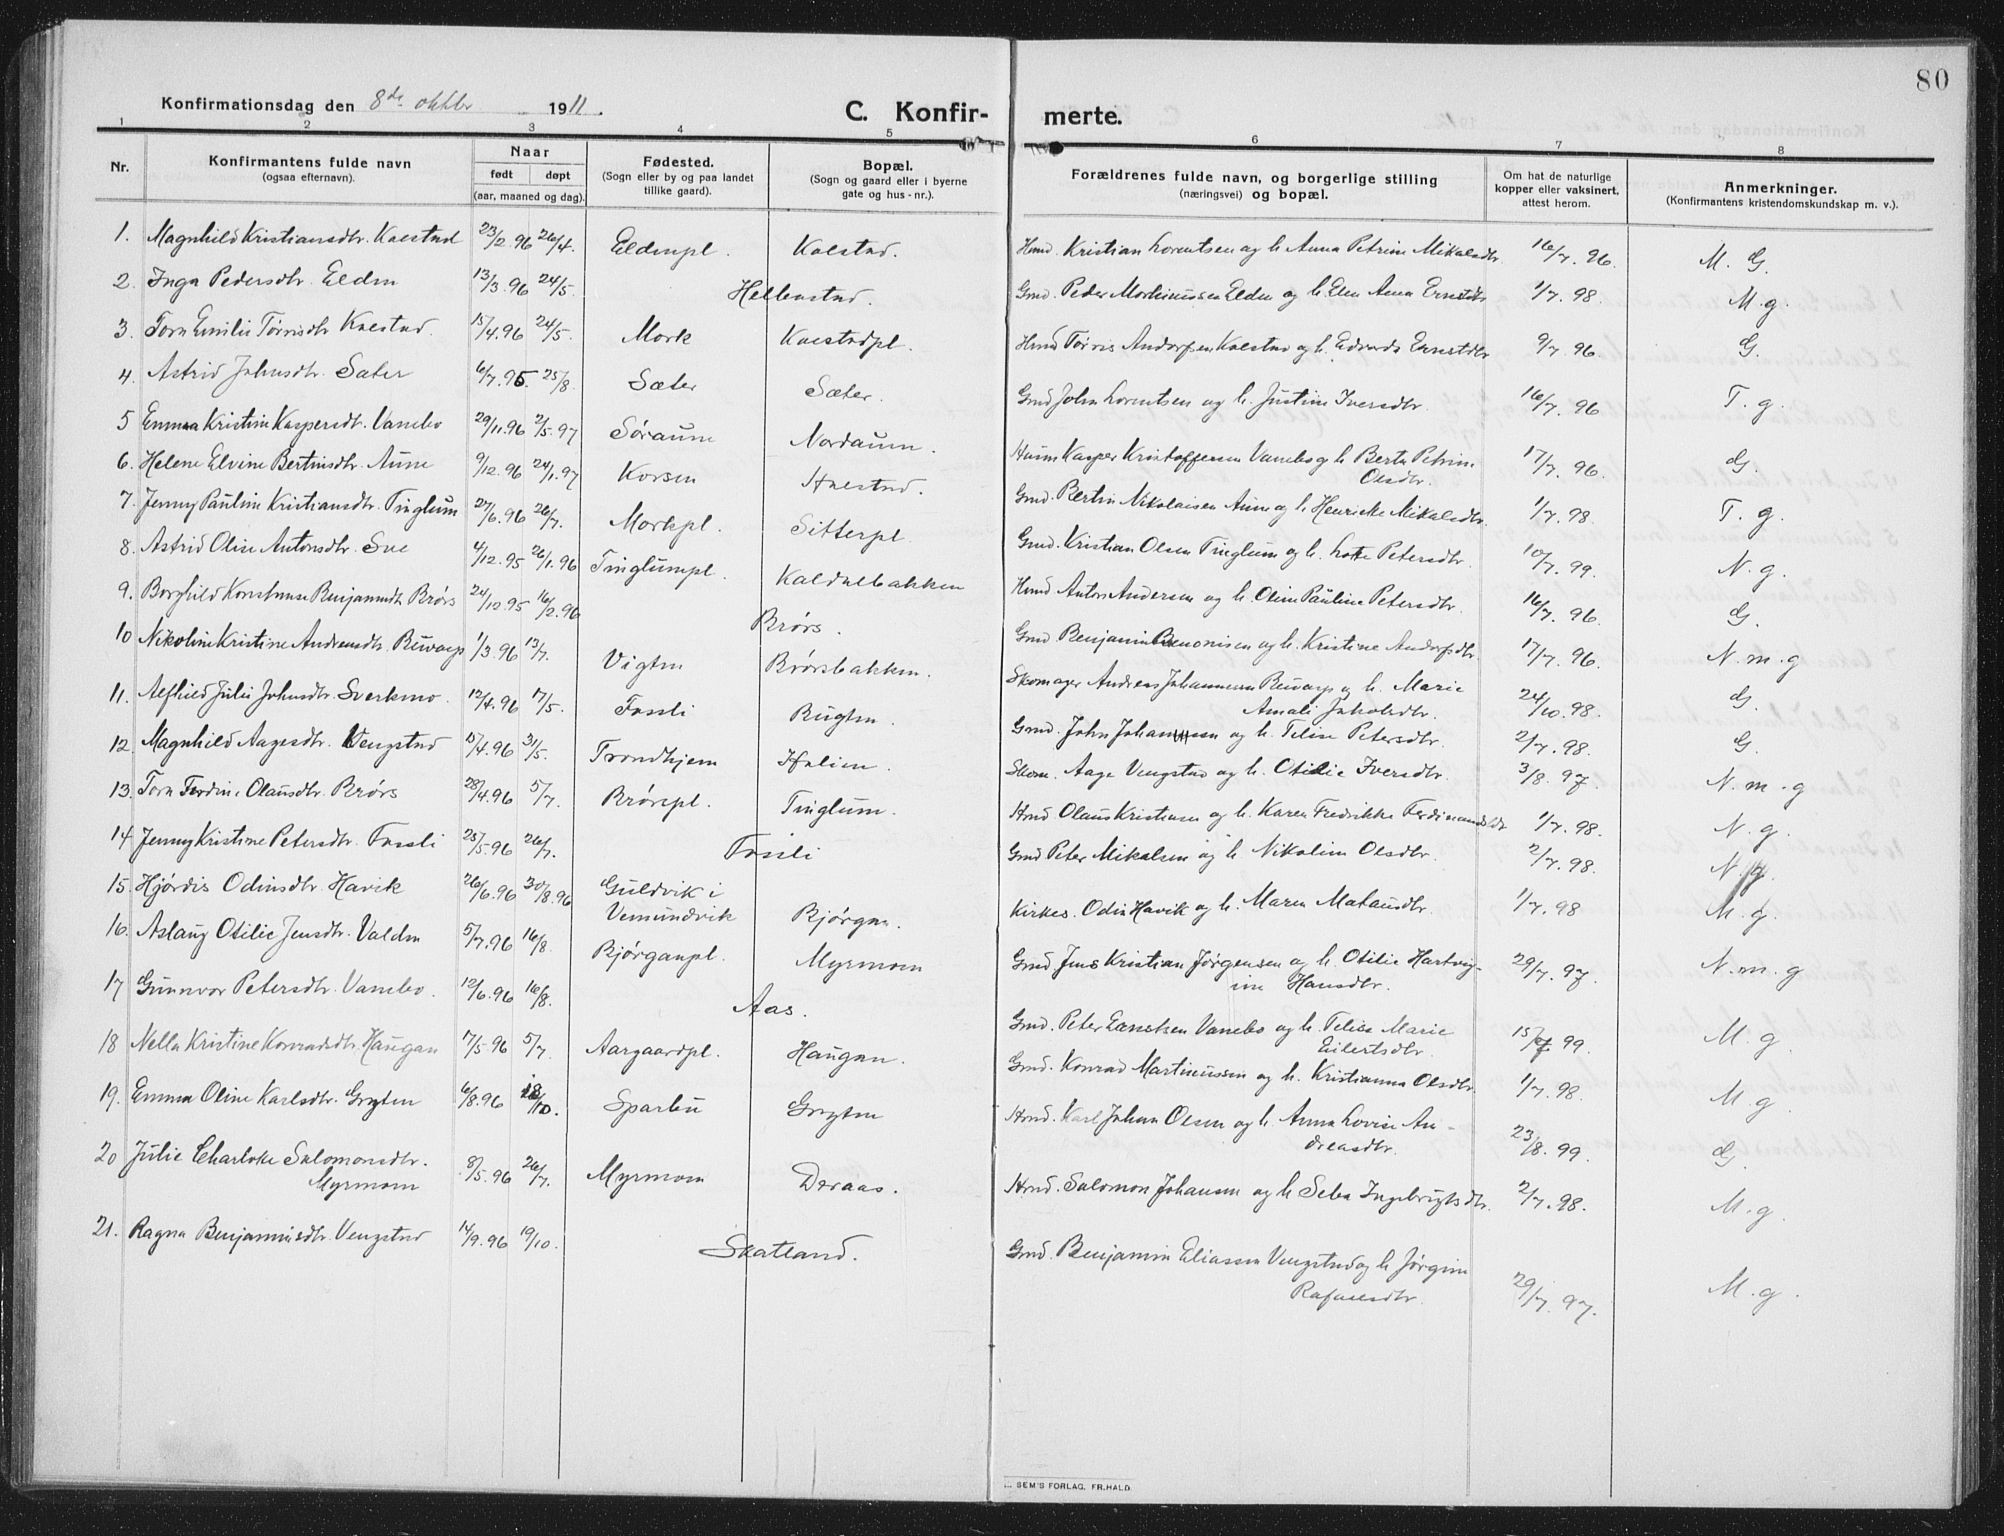 80
Konfirmationsdag den 8de oktbr 1911.
C. Konfir- merte.
1 2 3 4 5 6 7 8
Nr.
Konfirmantens fulde navn
(ogsaa efternavn).
Naar
født døpt
(aar, maaned og dag).
Fødested.
(Sogn eller by og paa landet
tillike gaard).
Bopæl.
(Sogn og gaard eller i byerne
gate og hus - nr.).
Forældrenes fulde navn, og borgerlige stilling
(næringsvei) og bopæl.
Om hat de naturlige
kopper eller vaksinert,
attest herom.
Anmerkninger.
(Konfirmantens kristendomskundskap m. v.).
1. Magnhild Kristiansdtr. Kalstad 23/2.96 26/4. Eldenpl. Kalstad. Hmd. Kristian Lorentsen og h. Anna Petrine Mikalsdtr 16/7.96. M. G.
2. Inga Pedersdtr. Elden 13/3.96 24/5. Hellenstad. Gmd. Peder Martinussen Elden og h. Elen Anna Ernstdtr 1/7.98. M.g.
3. Torn Emilie Tørrisdtr Kalstad. 15/4.96 24/5. Mork Kalstadpl. Hmd Tørris Andorsen Kalstad og h. Edvarda Ernstdtr 9/7.96. G.
4. Astrid Johnsdtr. Sæter 6/7.95. 25/8. Sæter Sæter. Gmd John Lorentsen og h. Justine Iversdtr. 16/7.96 T. g.
5 Emma Kristine Kaspersdt. Vanebo 29/11.96 2/5.97 Søraune Nordaunn. Husm Kasper Kristoffersen Vanebo og h Berte Petrine
Olsdtr. 17/7.96. G.
6. Helene Elvine Bertinsdtr. Aune 9/12.96 24/1.97 Korsen Halstad. Gmd. Bertin Nikolaisen Aune og h Henrikke Mikalsdtr. 1/7.98. T. g.
7. Jenny Pauline Kristiansdtr. Tinglum 27/6.96 26/7. Morkpl. Sitterpl. Gmd. Kristian Olsen Tinglum og h. Lotte Petersdtr. 10/7.99. N. g.
8. Astrid Oline Antonsdtr. Sve 4/12.95 26/1.96 Tinglumpl. Kaldalbakken Hmd Anton Andersen og h. Oline Pauline Petersdtr. 16/7.96. G.
9. Borghild Konstanse Benjaminsdtr Brørs 24/12.95 16/2.96 Brørs. Gmd Benjamin Benonisen og h. Kristine Andorsdtr. 17/7.96. N.m.g
10 Nikoline Kristine Andreasdtr. Buvarp 1/3.96 13/7. Vigten Brørsbakken. Skomager Andreas Johannesen Buvarp og h. Marie
Amali Jakobsdtr. 24/10.98. G.
11. Alfhild Julie Johnsdtr. Sverkmo. 12/4.96 17/5. Fossli Bugten. Gmd. John Johansen og h. Telise Petersdtr. 2/7.98. G.
12. Magnhild Aagesdtr. Vengstad 15/4.96 31/5. Trondhjem Hylien. Skom. Aage Vengstad og h. Otilie Iversdtr. 3/8.97. N. m. g
13. Torn Ferdin. Olausdtr. Brørs 28/4.96 5/7. Brørspl. Tinglum. Hmd Olaus Kristiansen og h. Karen Fredrikke Ferdinandsdtr 1/7.98. N. g.
14 Jenny Kristine Petersdtr. Fossli 25/5.96 26/7. Fossli Gmd Peter Mikalsen og h Nikoline Olsdtr. 2/7.98. N.g.
15. Hjørdis Odinsdtr. Havik 26/6.96 30/8.96 Guldvik i
Vemundvik Bjørgan. Kirkes. Odin Havik og h. Maren Matausdtr. 1/7.98 M.g.
16. Aslaug Otilie Jensdtr. Valden 5/7.96 16/8. Bjørganpl. Myrmoen Gmd Jens Kristian Jørgensen og h. Otilie Hartvig-
ine Hansdtr. 29/7.97. N.m.g
17 Gunnvor Petersdtr. Vanebo. 12/6.96 16/8. Aas. Gmd. Peter Ernstsen Vanebo og h. Telise Marie
Eilertsdtr. 15/7.99. M. g.
18 Nella Kristine Konradsdtr. Haugan 7/5.96 5/7. Aargaardpl. Haugan. Gmd. Konrad Martinussen og h. Kristianna Olsdtr. 1/7.98. M g.
19. Emma Oline Karlsdtr. Gryten 6/8.96 18/10. Sparbu Gryten Hmd. Karl Johan Olsen og h. Anna Lovise An-
dreasdtr. 23/8.99. G.
20 Julie Charlotte Salomonsdtr.
Myrmoen 8/5.96 26/7. Myrmoen Deraas. Hmd. Salomon Johansen og h Seba Ingebrigtsdtr. 2/7.98. M.g.
21. Ragna Benjaminsdtr. Vengstad 14/9.96 19/10. Skatland. Gmd. Benjamin Eliassen Vengstad og h Jørgine
Rafaelsdtr. 29/7.97. M.g.
SEM'S FORLAG, FR.HALD.